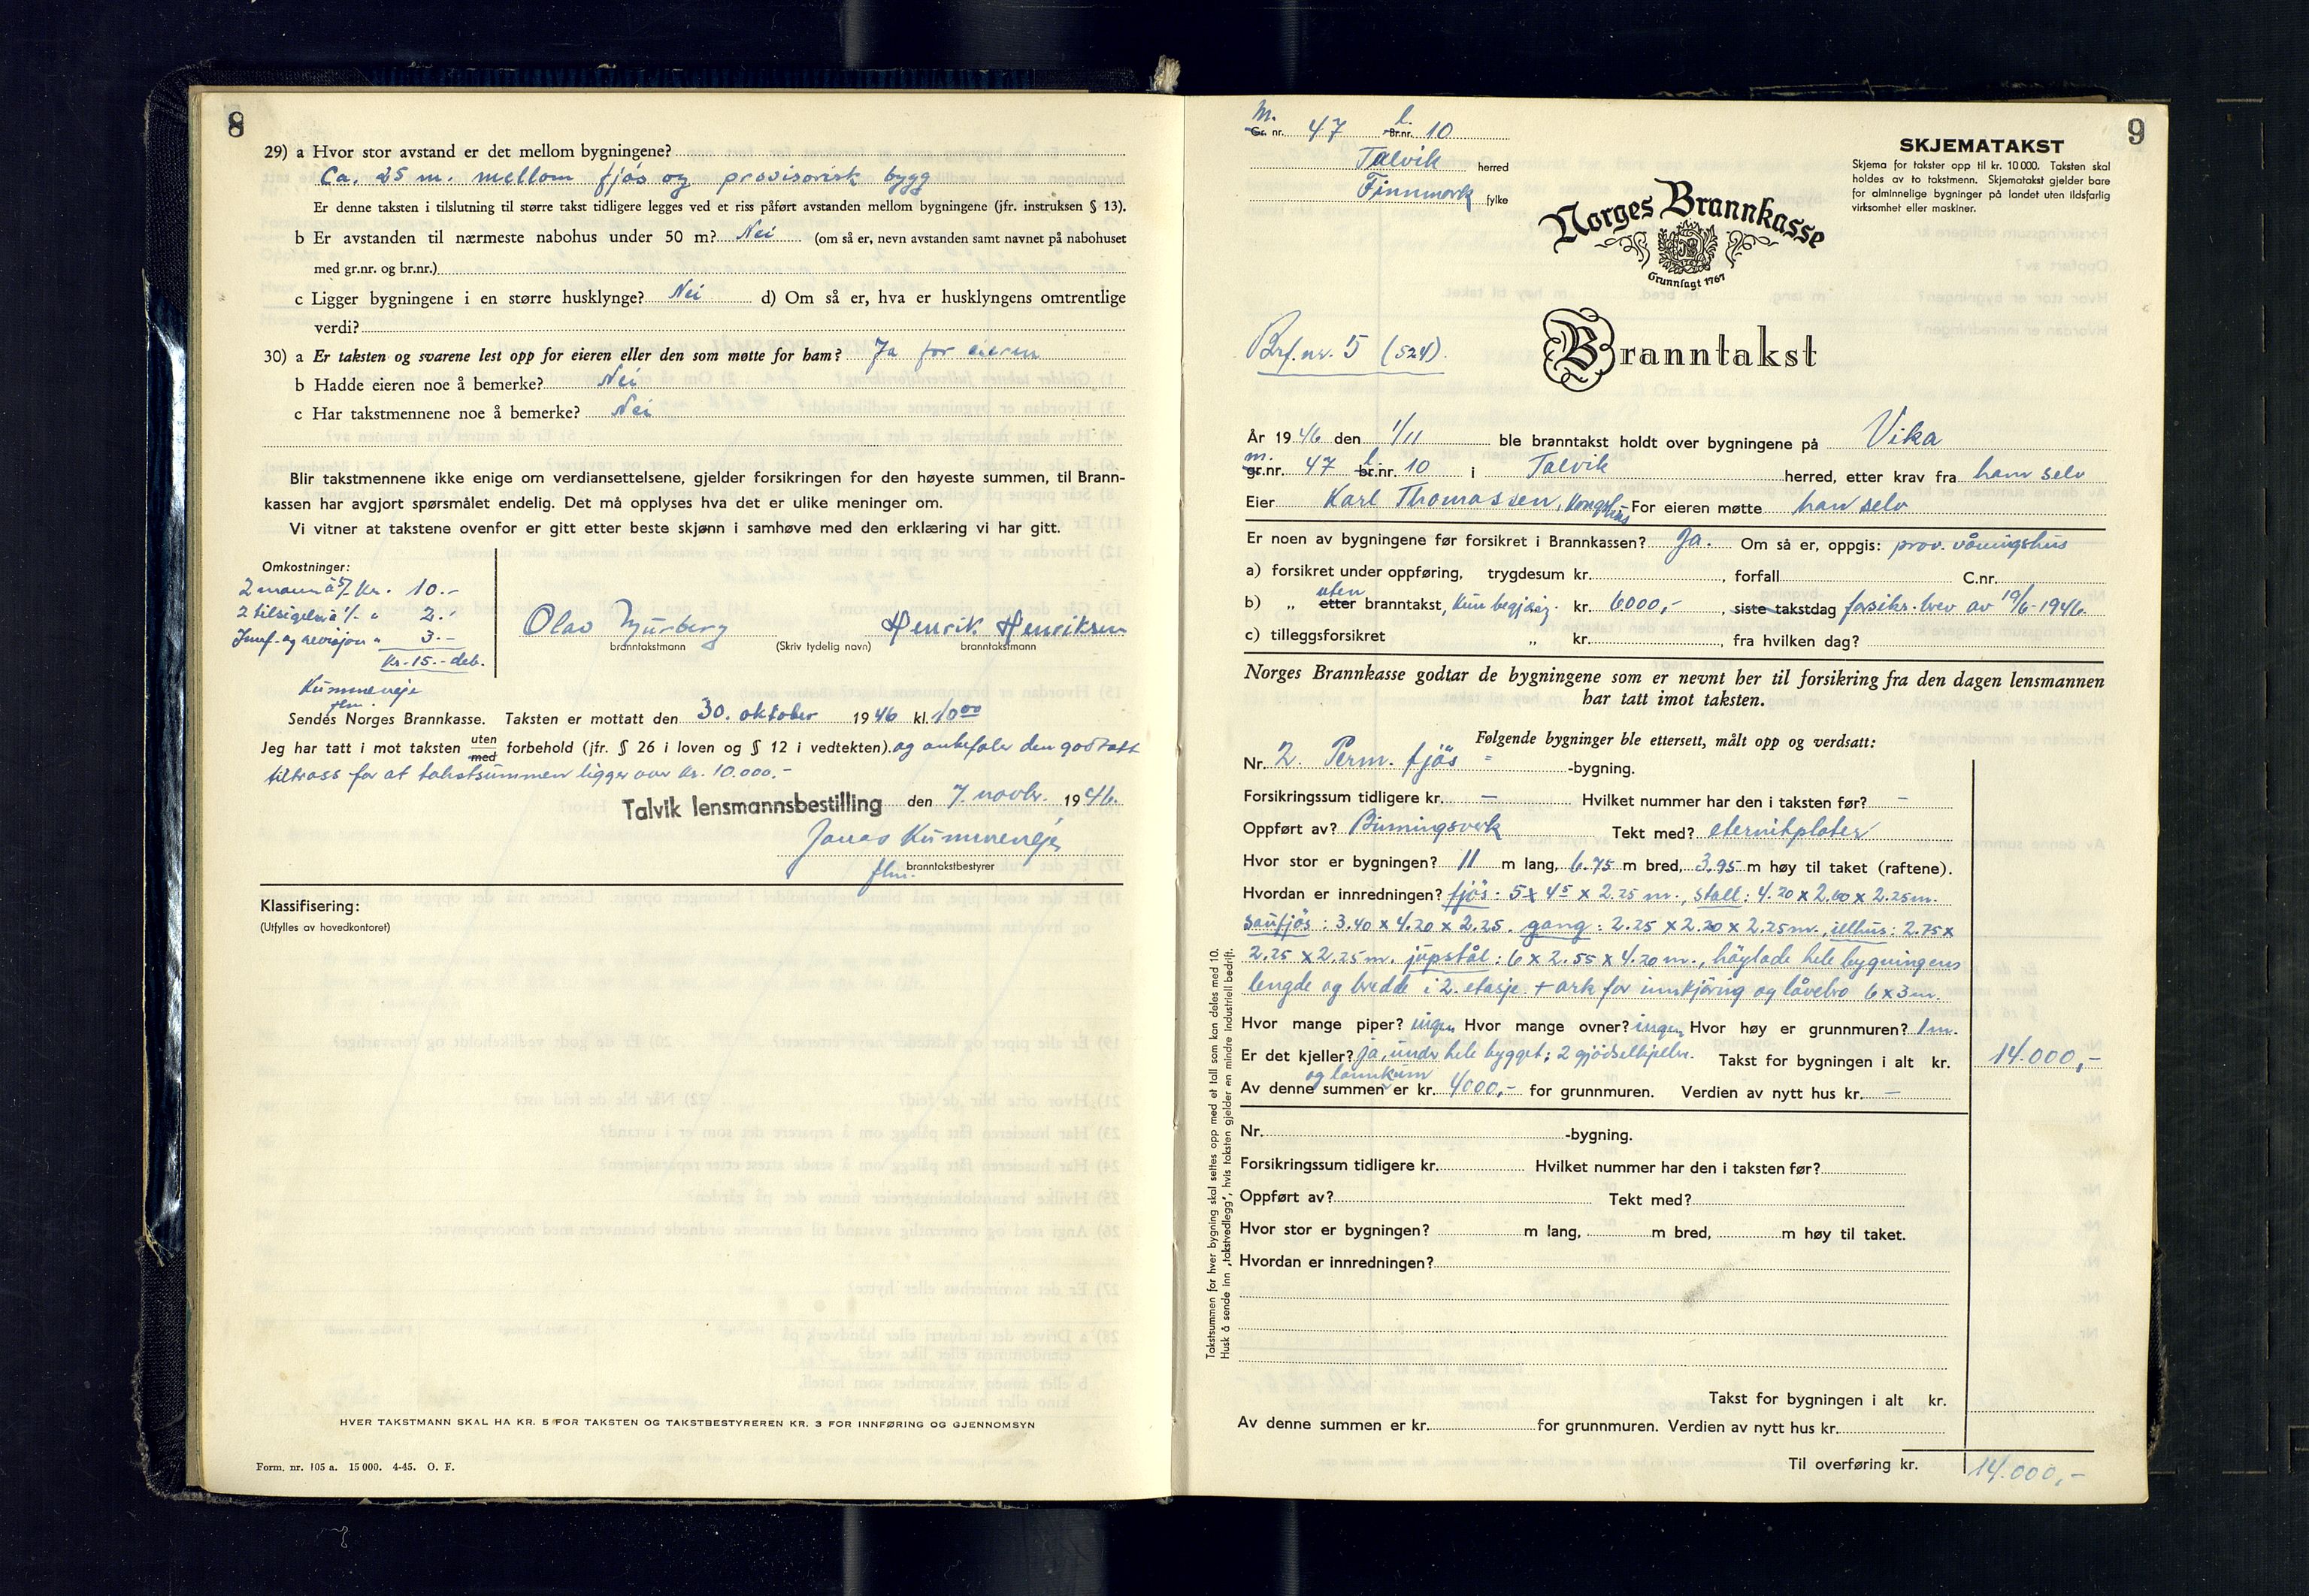 8
29) a Hvor stor avstand er det mellom bygningene?
Ca. 25 m. mellom fjøs og provisorisk bygg
Er denne taksten i tilslutning til større takst tidligere legges ved et riss påført avstanden mellom bygningene (jfr. instruksen § 13).
b Er avstanden til nærmeste nabohus under 50 m? Nei (om så er, nevn avstanden samt navnet på nabohuset
med gr.nr. og br.nr.)
c Ligger bygningene i en større husklynge? Nei d) Om så er, hva er husklyngens omtrentlige
verdi?
30) a Er taksten og svarene lest opp for eieren eller den som møtte for ham? Ja for eieren
b Hadde eieren noe å bemerke? Nei
c Har takstmennene noe å bemerke? Nei
Blir takstmennene ikke enige om verdiansettelsene, gjelder forsikringen for den høyeste summen, til Brann-
kassen har avgjort spørsmålet endelig. Det må opplyses hva det er ulike meninger om.
Vi vitner at takstene ovenfor er gitt etter beste skjønn i samhøve med den erklæring vi har gitt.
Omkostninger:
2 mann à 5/- kr. 10.-
2 tilsigelse à 1/- " 2.-
Innf. og revisjon " 3.-
Kr. 15.- deb.
Kummeneje
flm.
Olav Henrik Henriksen
branntakstmann (Skriv tydelig navn) branntakstmann
Sendes Norges Brannkasse. Taksten er mottatt den 30. oktober 1946 kl. 10 00
Jeg har tatt i mot taksten uten med forbehold (jfr. § 26 i loven og § 12 i vedtekten). og anbefaler den godtatt
tiltross for at takstsummen ligger over kr. 10.000.-
Talvik lensmannsbestilling den 7. novbr. 1946.
Jonas Kummeneje
flm. branntakstbestyrer
Klassifisering:
(Utfylles av hovedkontoret)
HVER TAKSTMANN SKAL HA KR. 5 FOR TAKSTEN OG TAKSTBESTYREREN KR. 3 FOR INNFØRING OG GJENNOMSYN
Form. nr. 105 a. 15 000. 4-45. O. F.
9
m. l.
Gr. nr. 47 Br.nr. 10
Talvik herred
Finnmark fylke
SKJEMATAKST
Skjema for takster opp til kr. 10 000. Taksten skal
holdes av to takstmenn. Skjematakst gjelder bare
for alminnelige bygninger på landet uten ildsfarlig
virksomhet eller maskiner.
Norges Brannkasse
Grunnlagt 1767
Brf. nr. 5 (524).
Branntakst
År 1946 den 1/11 ble branntakst holdt over bygningene på Vika
m. l.
gr.nr. 47 br.nr. 10 i Talvik herred, etter krav fra ham selv
Eier Karl Thomassen, Kongshus For eieren møtte han selv
Er noen av bygningene før forsikret i Brannkassen? Ja. Om så er, oppgis: prov. våningshus
a) forsikret under oppføring, trygdesum kr. , forfall C.nr.
uten
b) „ etter branntakst, kun begjæring. kr. 6000,- , siste takstdag forsikr. brev av 19/6-1946.
c) tilleggsforsikret „ kr. , fra hvilken dag?
Norges Brannkasse godtar de bygningene som er nevnt her til forsikring fra den dagen lensmannen
har tatt imot taksten.
Følgende bygninger ble ettersett, målt opp og verdsatt:
Nr. 2. Perm. fjös -bygning.
Forsikringssum tidligere kr. — Hvilket nummer har den i taksten før? —
Oppført av? Binningsverk Tekt med? eternitplater
Hvor stor er bygningen? 11 m lang, 6.75 m bred, 3.95 m høy til taket (raftene).
Hvordan er innredningen? fjös: 5 x 4 5 x 2.25 m., stall: 4.20 x 2.60 x 2.25 m.
saufjös: 3.40 x 4.20 x 2.25. gang: 2.25 x 2.20 x 2.25 m., illhus: 2.75 x
2.25 x 2.25 m. jupstål: 6 x 2.55 x 4.20 m., höylade hele bygningens
lengde og bredde i 2. etasje. + ark for innkjöring og låvebro 6 x 3 m.
Hvor mange piper? ingen Hvor mange ovner? ingen Hvor høy er grunnmuren? 1 m.
Er det kjeller? ja, under hele bygget; 2 gjödselkjellere. Takst for bygningen i alt kr. 14.000,-
og lannkum
Av denne summen er kr. 4000,- for grunnmuren. Verdien av nytt hus kr. —
Nr. -bygning.
Forsikringssum tidligere kr. Hvilket nummer har den i taksten før?
Oppført av? Tekt med?
Hvor stor er bygningen? m lang, m bred, m høy til taket.
Hvordan er innredningen?
Takst for bygningen i alt kr.
Av denne summen er kr. for grunnmuren. Verdien av nytt hus kr.
Til overføring kr. 14.000,-
Takstsummen for hver bygning skal settes opp med et tall som kan deles med 10.
Husk å sende inn „takstvedlegg", hvis taksten gjelder en mindre industriell bedrift.